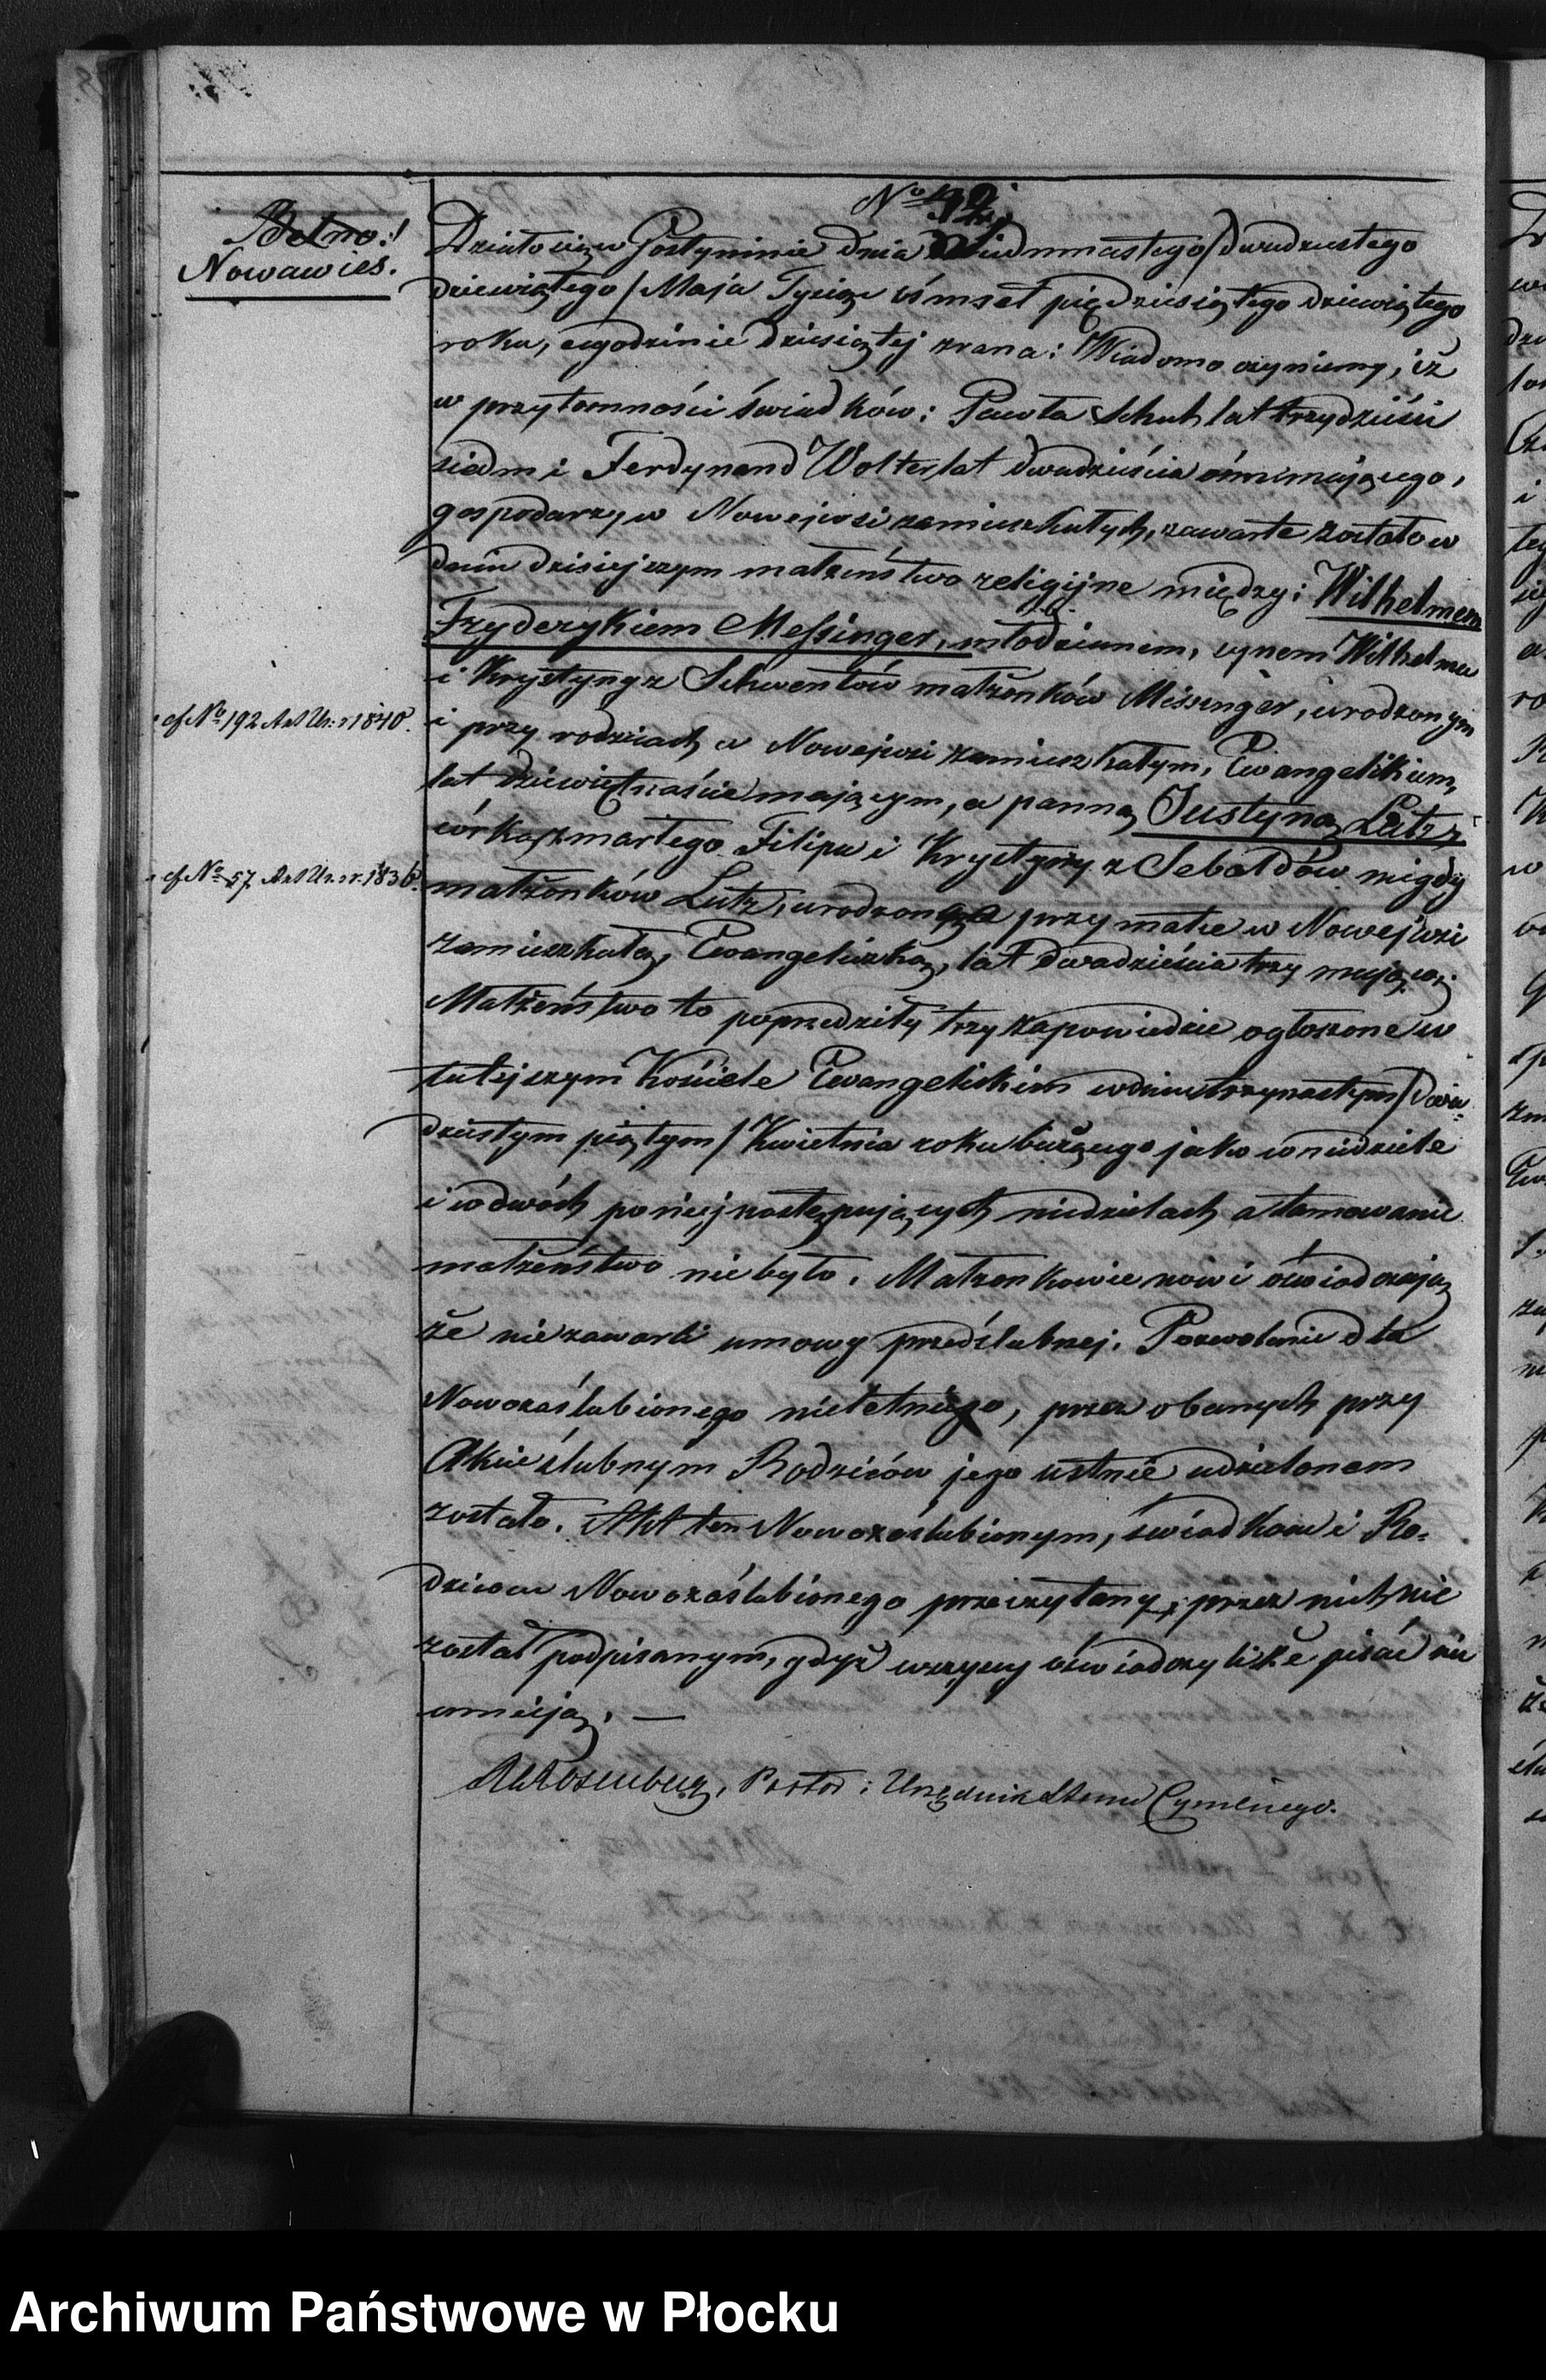 Nowawies.
Działo się w Gostyninie dnia siedmnastego / dwudziestego
dziewiątego / Maja Tysiąc ośmset pięćdziesiątego dziewiątego
roku, o godzinie dziesiątej zrana: Wiadomo czyniemy, iż
w przytomności świadków: Pawła Schuh lat trzydzieści
siedm i Ferdynand Wolter lat dwadzieścia ośm mającego,
gospodarzy w Nowejwsi zamieszkałych, zawarte zostało w
dniu dzisiejszym małżeństwo religijne między: Wilhelmem
Fryderykiem Messinger, młodzianem, synem Wilhelma
i Krystyny z Schwentów małżonków Messinger, urodzonym
cf No 192 Akt Ur: r 1840.
i przy rodzicach w Nowejwsi zamieszkałym, Ewangelikiem,
lat dziewiętnaście mającym, a panną Justyną Lutz,
córką zmarłego Filipa i Krystyny z Sebaldów niegdy
cf No 57 Akt Ur. r. 1836.
małżonków Lutz, urodzoną przy matce w Nowejwsi
zamieszkałą, Ewangeliczką, lat dwadzieścia trzy mającą.
Małżeństwo to poprzedziły trzy zapowiedzie ogłoszone w
tutejszym Kościele Ewangelickim w dniu trzynastym / dwu-
dziestym piątym / Kwietnia roku bieżącego jako w niedziele
i w dwóch poniej następujących niedzielach a tamowanie
małżeństwo nie było. Małżonkowie nowi oświadczają
że nie zawarli umowy przedślubnej. Pozwolenie dla
Nowozaślubionego nieletniego, przez obecnych przy
Akcie ślubnym Rodziców jego ustnie udzielonem
zostało. Akt ten Nowozaślubionym, świadkom i Ro-
dzicom Nowozaślubionego przeczytany, przez nich nie
został podpisanym, gdyż wszyscy oświadczyli że pisać nie
umieją. —
Rosenberg, Pastor i Urzędnik Stanu Cywilnego.
Archiwum Państwowe w Płocku